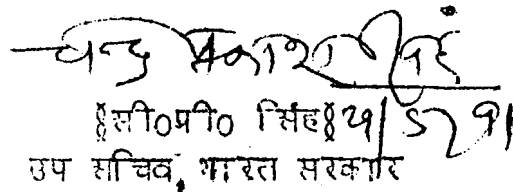 चन्द्र प्रकाश सिंह
॥सी0पी0 सिंह॥ 29/5/91
उप सचिव, भारत सरकार